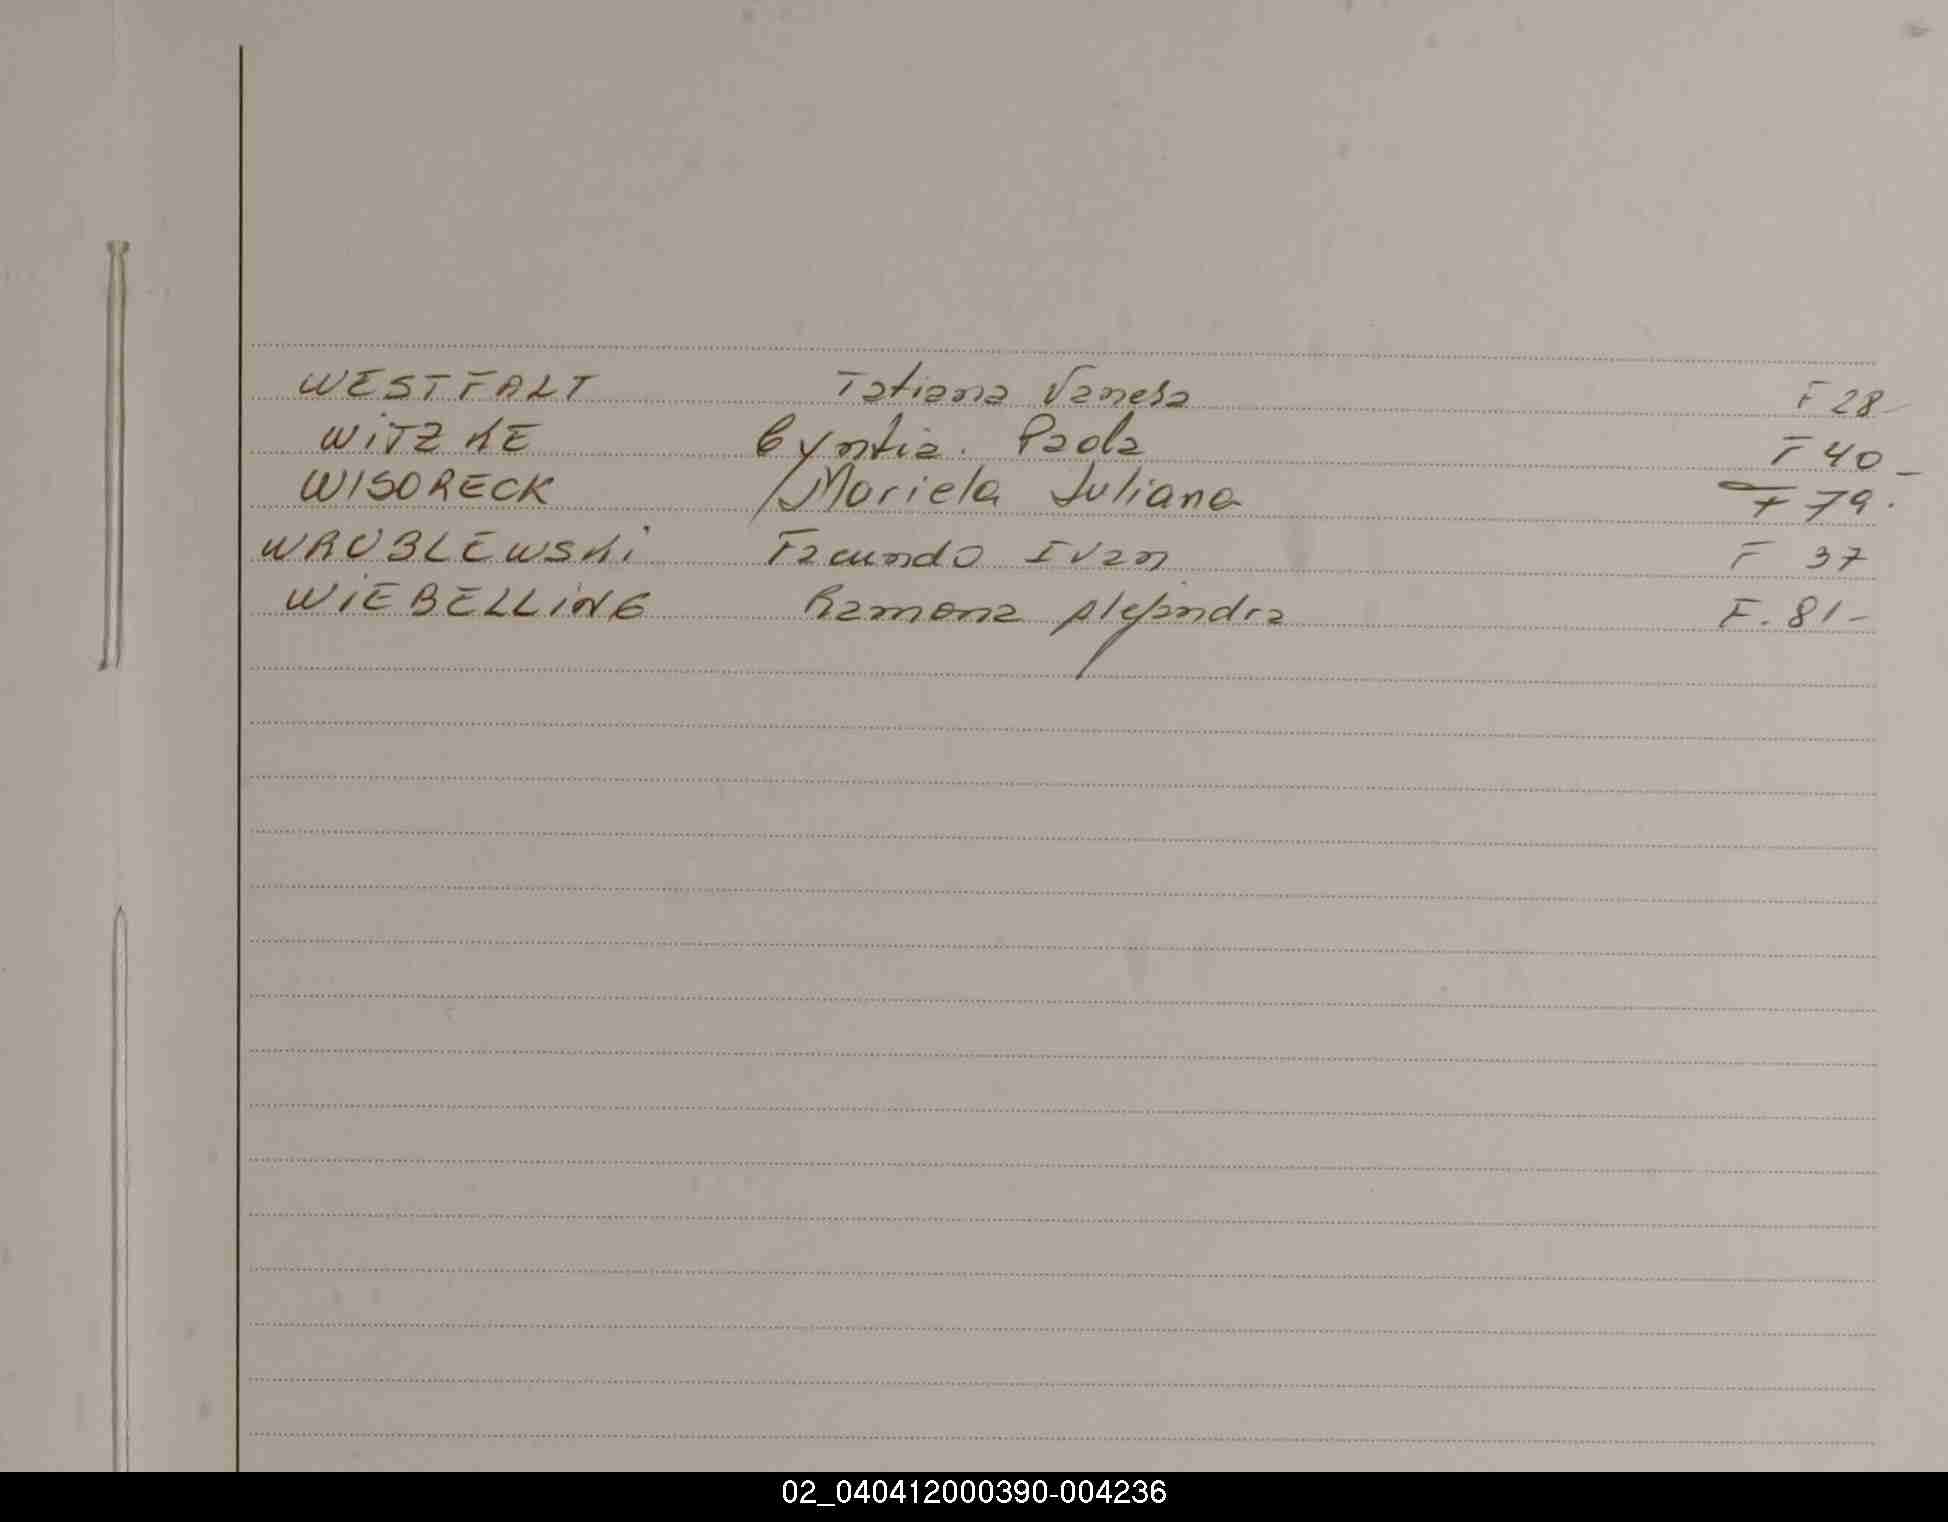 WESTFALT Tatiana Vanesa F 28-
WiTZKE Cyntia. Paola F 40-
WISORECK Mariela Juliana F 79.-
WRUBLEWSKi Facundo Ivan F 37
WiEBELLiNG Ramona Alejandra F. 81-
02_040412000390-004236